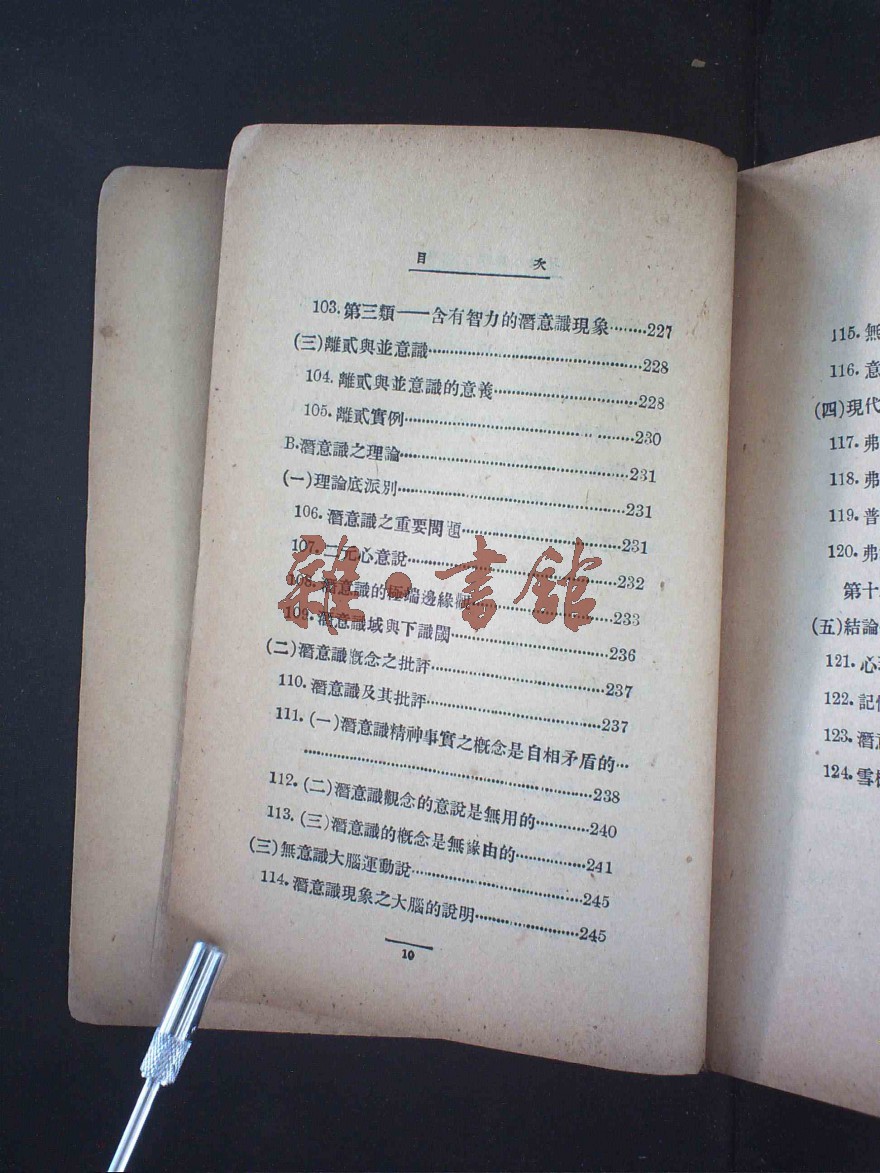 目 次
103.第三類——含有智力的潛意識現象………227
(三)離貳與並意識………228
104.離貳與並意識的意義………228
105.離貳實例………230
B.潛意識之理論………231
(一)理論底派別………231
106.潛意識之重要問題………231
107.二元心意說………232
108.潛意識的極端邊緣觀………233
109.潛意識域與下識閾………236
(二)潛意識概念之批評………237
110.潛意識及其批評………237
111.(一)潛意識精神事實之概念是自相矛盾的…
………238
112.(二)潛意識觀念的意說是無用的………240
113.(三)潛意識的概念是無緣由的………241
(三)無意識大腦運動說………245
114.潛意識現象之大腦的說明………245
10
雜·書館
115.無
116.意
(四)現代
117.弗
118.弗
119.普
120.弗
第十
(五)結論
121.心
122.記
123.潛
124.雪